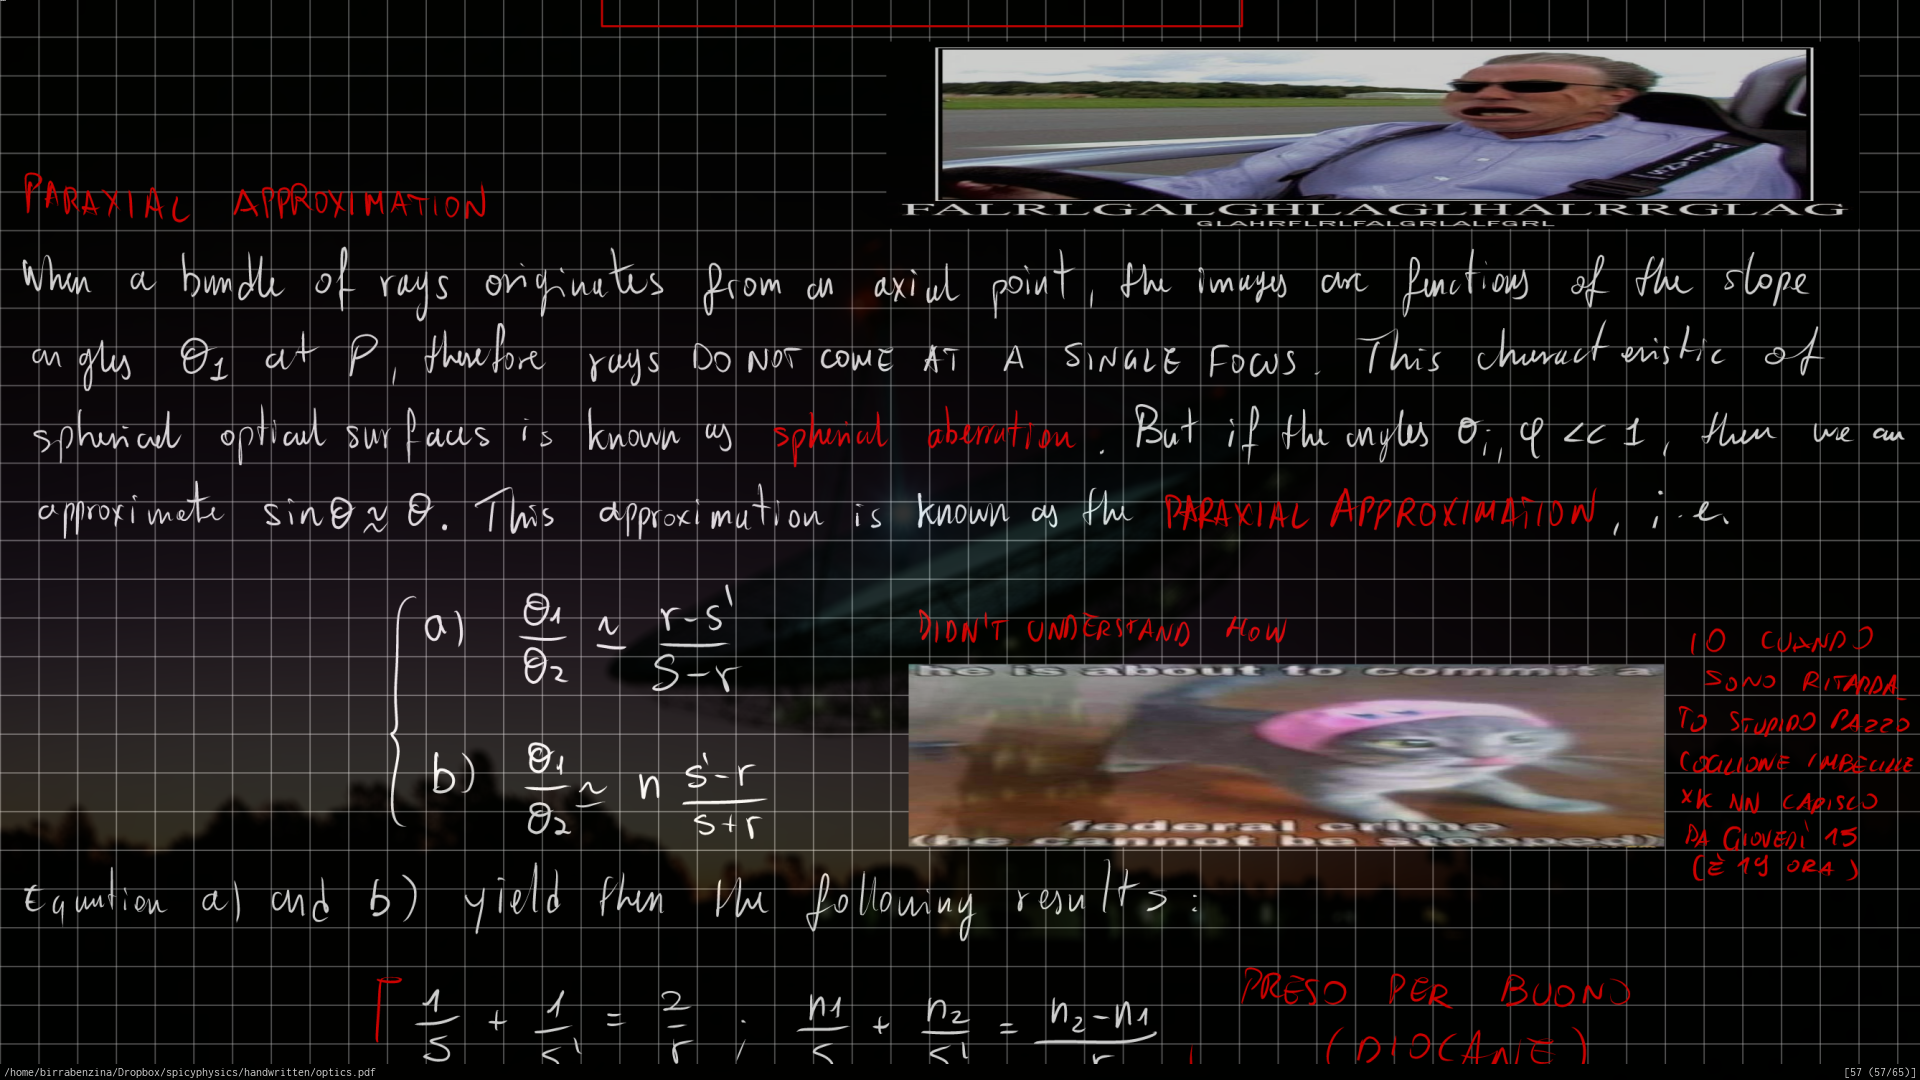 FALRLGALGHLAGLHALRRGLAG
GLAHRFLRLFALGRLALFGRL
PARAXIAL APPROXIMATION
When a bundle of rays originates from an axial point, the images are functions of the slope
angles θ1 at P, therefore rays DO NOT COME AT A SINGLE FOCUS. This characteristic of
spherical optical surfaces is known as spherical aberration. But if the angles θi, φ << 1, then we can
approximate sinθ ≈ θ. This approximation is known as the PARAXIAL APPROXIMATION, i.e.
a) θ1/θ2 ≃ (r-s')/(s-r)
b) θ1/θ2 ≃ n (s'-r)/(s+r)
DIDN'T UNDERSTAND HOW
he is about to commit a
federal crime
(he cannot be stopped)
IO CUANDO
SONO RITARDA
TO STUPIDO PAZZO
COGLIONE IMBECILLE
XK NN CAPISCO
DA GIOVEDÌ 15
(È 19 ORA)
Equation a) and b) yield then the following results:
1/s + 1/s' = 2/r ; n1/s + n2/s' = (n2-n1)/r
PRESO PER BUONO
(DIOCANE)
/home/birrabenzina/Dropbox/spicyphysics/handwritten/optics.pdf
[57 (57/65)]